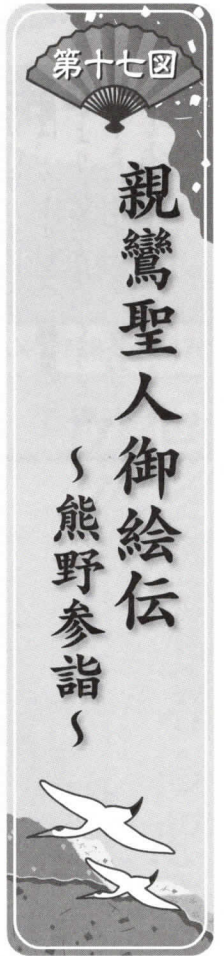 第十七図
親鸞聖人御絵伝
～熊野参詣～